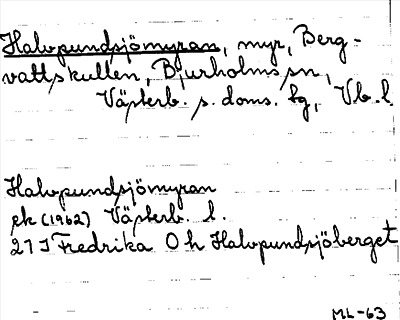 Halvpundsjömyran, myr, Berg-
vattskullen, Bjurholms sn,
Västerb. s. doms. tg, Vb. l.
Halvpundsjömyran
ek (1962) Västerb. l.
21 I Fredrika O h Halvpundsjöberget
ML-63